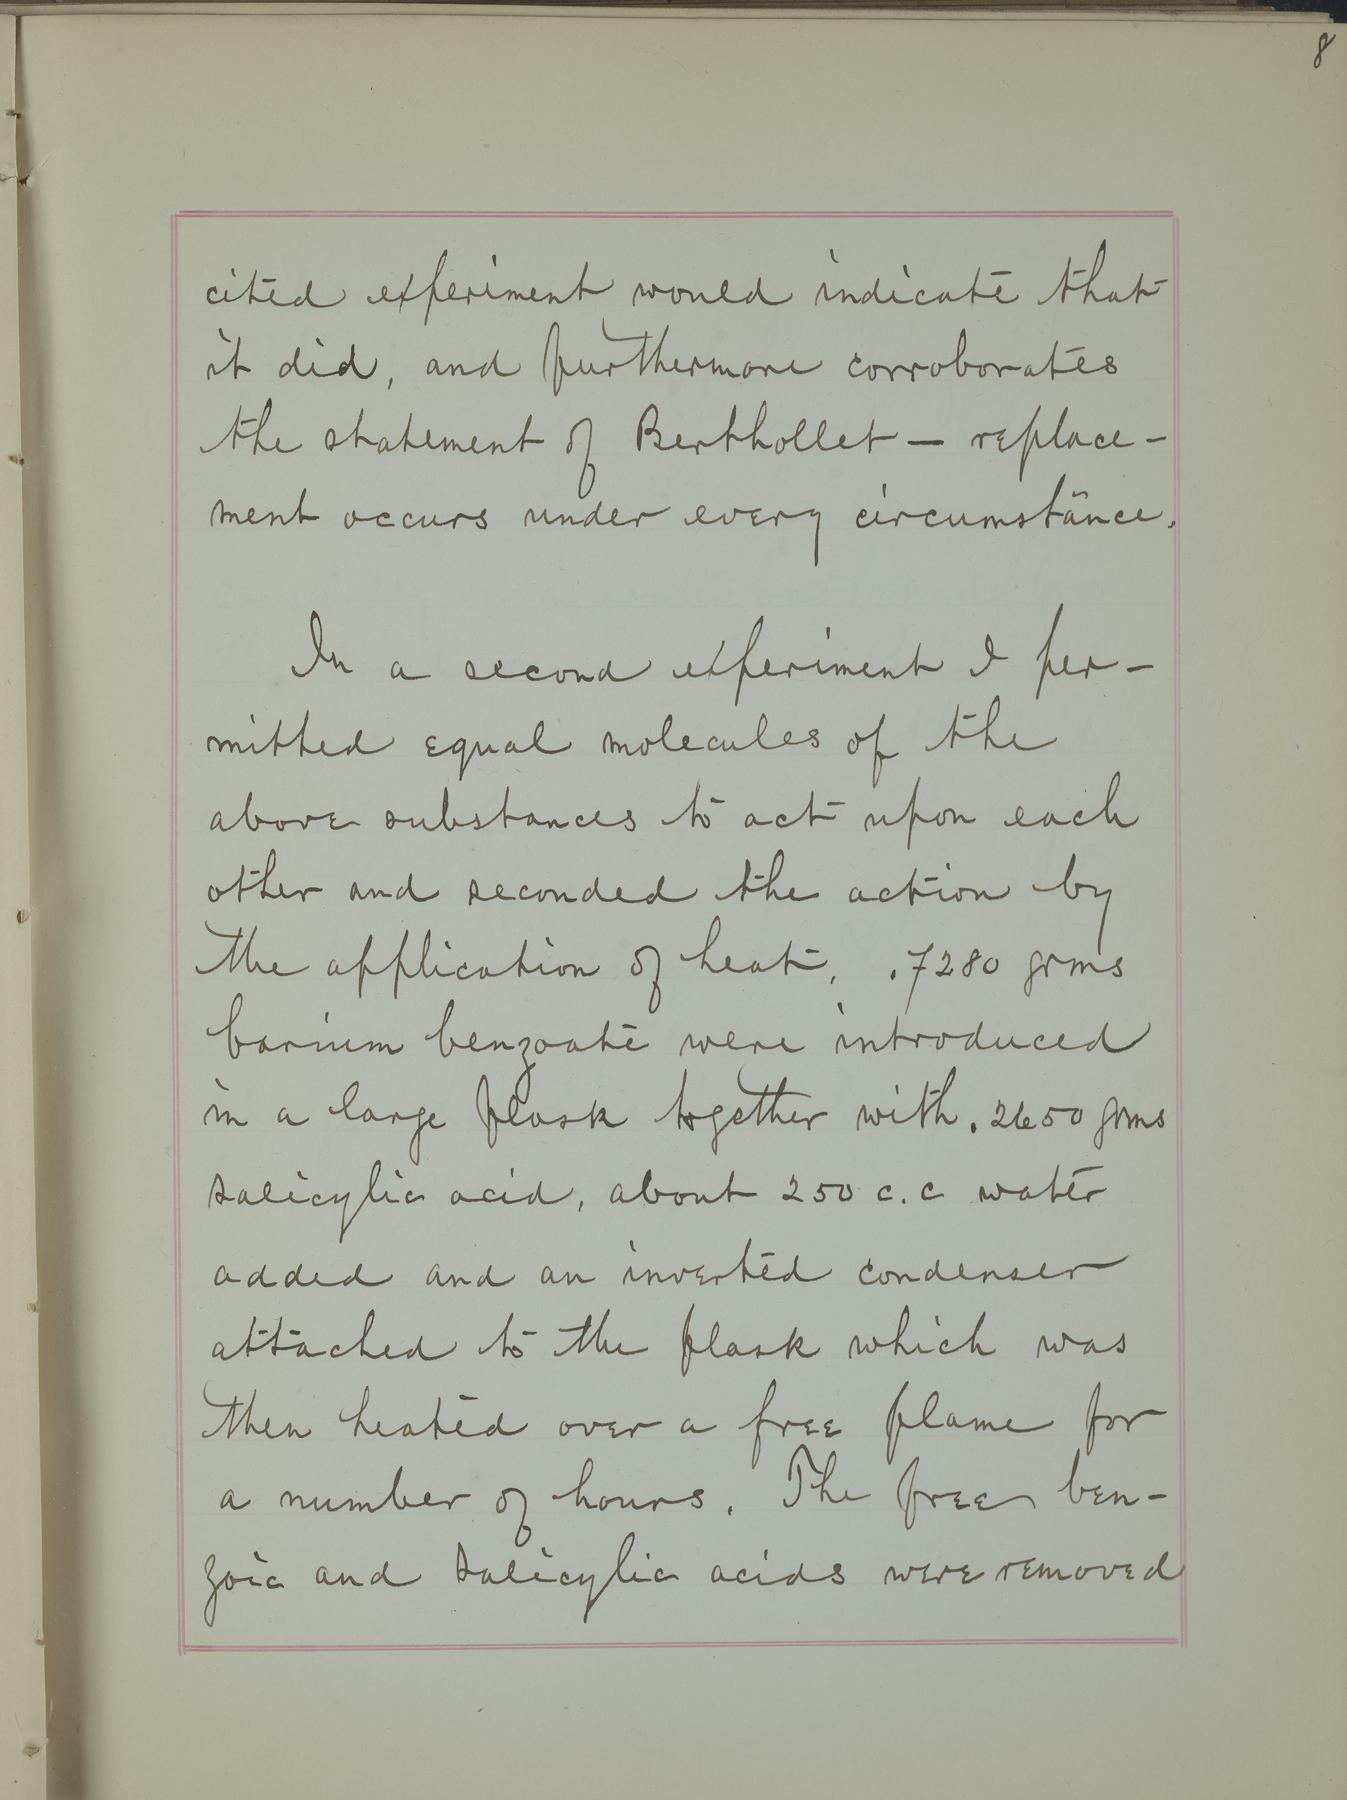 8
cited experiment would indicate that
it did, and furthermore corroborates
the statement of Berthollet — replace-
ment occurs under every circumstance.
In a second experiment I per-
mitted equal molecules of the
above substances to act upon each
other and seconded the action by
the application of heat. .7280 grms
barium benzoate were introduced
in a large flask together with .2650 grms
salicylic acid, about 250 c.c water
added and an inverted condenser
attached to the flask which was
then heated over a free flame for
a number of hours. The free ben-
zoic and salicylic acids were removed